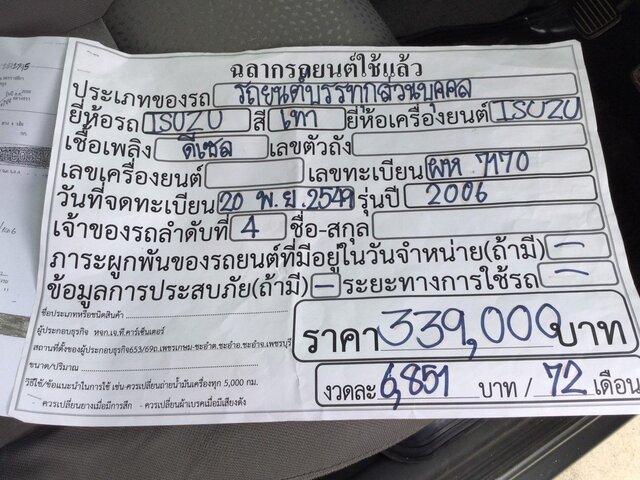 ฉลากรถยนต์ใช้แล้ว
ประเภทของรถ รถยนต์บรรทุกส่วนบุคคล
ยี่ห้อรถ ISUZU สี เทา ยี่ห้อเครื่องยนต์ ISUZU
เชื้อเพลิง ดีเซล เลขตัวถัง
เลขเครื่องยนต์ เลขทะเบียน ผห 7170
วันที่จดทะเบียน 20 พ.ย. 2549 รุ่นปี 2006
เจ้าของรถลำดับที่ 4 ชื่อ-สกุล
ภาระผูกพันของรถยนต์ที่มีอยู่ในวันจำหน่าย(ถ้ามี) -
ข้อมูลการประสบภัย(ถ้ามี) - ระยะทางการใช้รถ -
ชื่อประเภทหรือชนิดสินค้า
ผู้ประกอบธุรกิจ หจก.เจ.ที.คาร์เซ็นเตอร์
สถานที่ตั้งของผู้ประกอบธุรกิจ653/69ถ.เพชรเกษม-ชะอำต.ชะอำอ.ชะอำจ.เพชรบุรี
ขนาด/ปริมาณ
วิธีใช้/ข้อแนะนำในการใช้ เช่น ควรเปลี่ยนถ่ายน้ำมันเครื่องทุก 5,000 กม.
- ควรเปลี่ยนยางเมื่อมีการสึก - ควรเปลี่ยนผ้าเบรคเมื่อมีเสียงดัง
ราคา 339,000 บาท
งวดละ 6,851 บาท / 72 เดือน